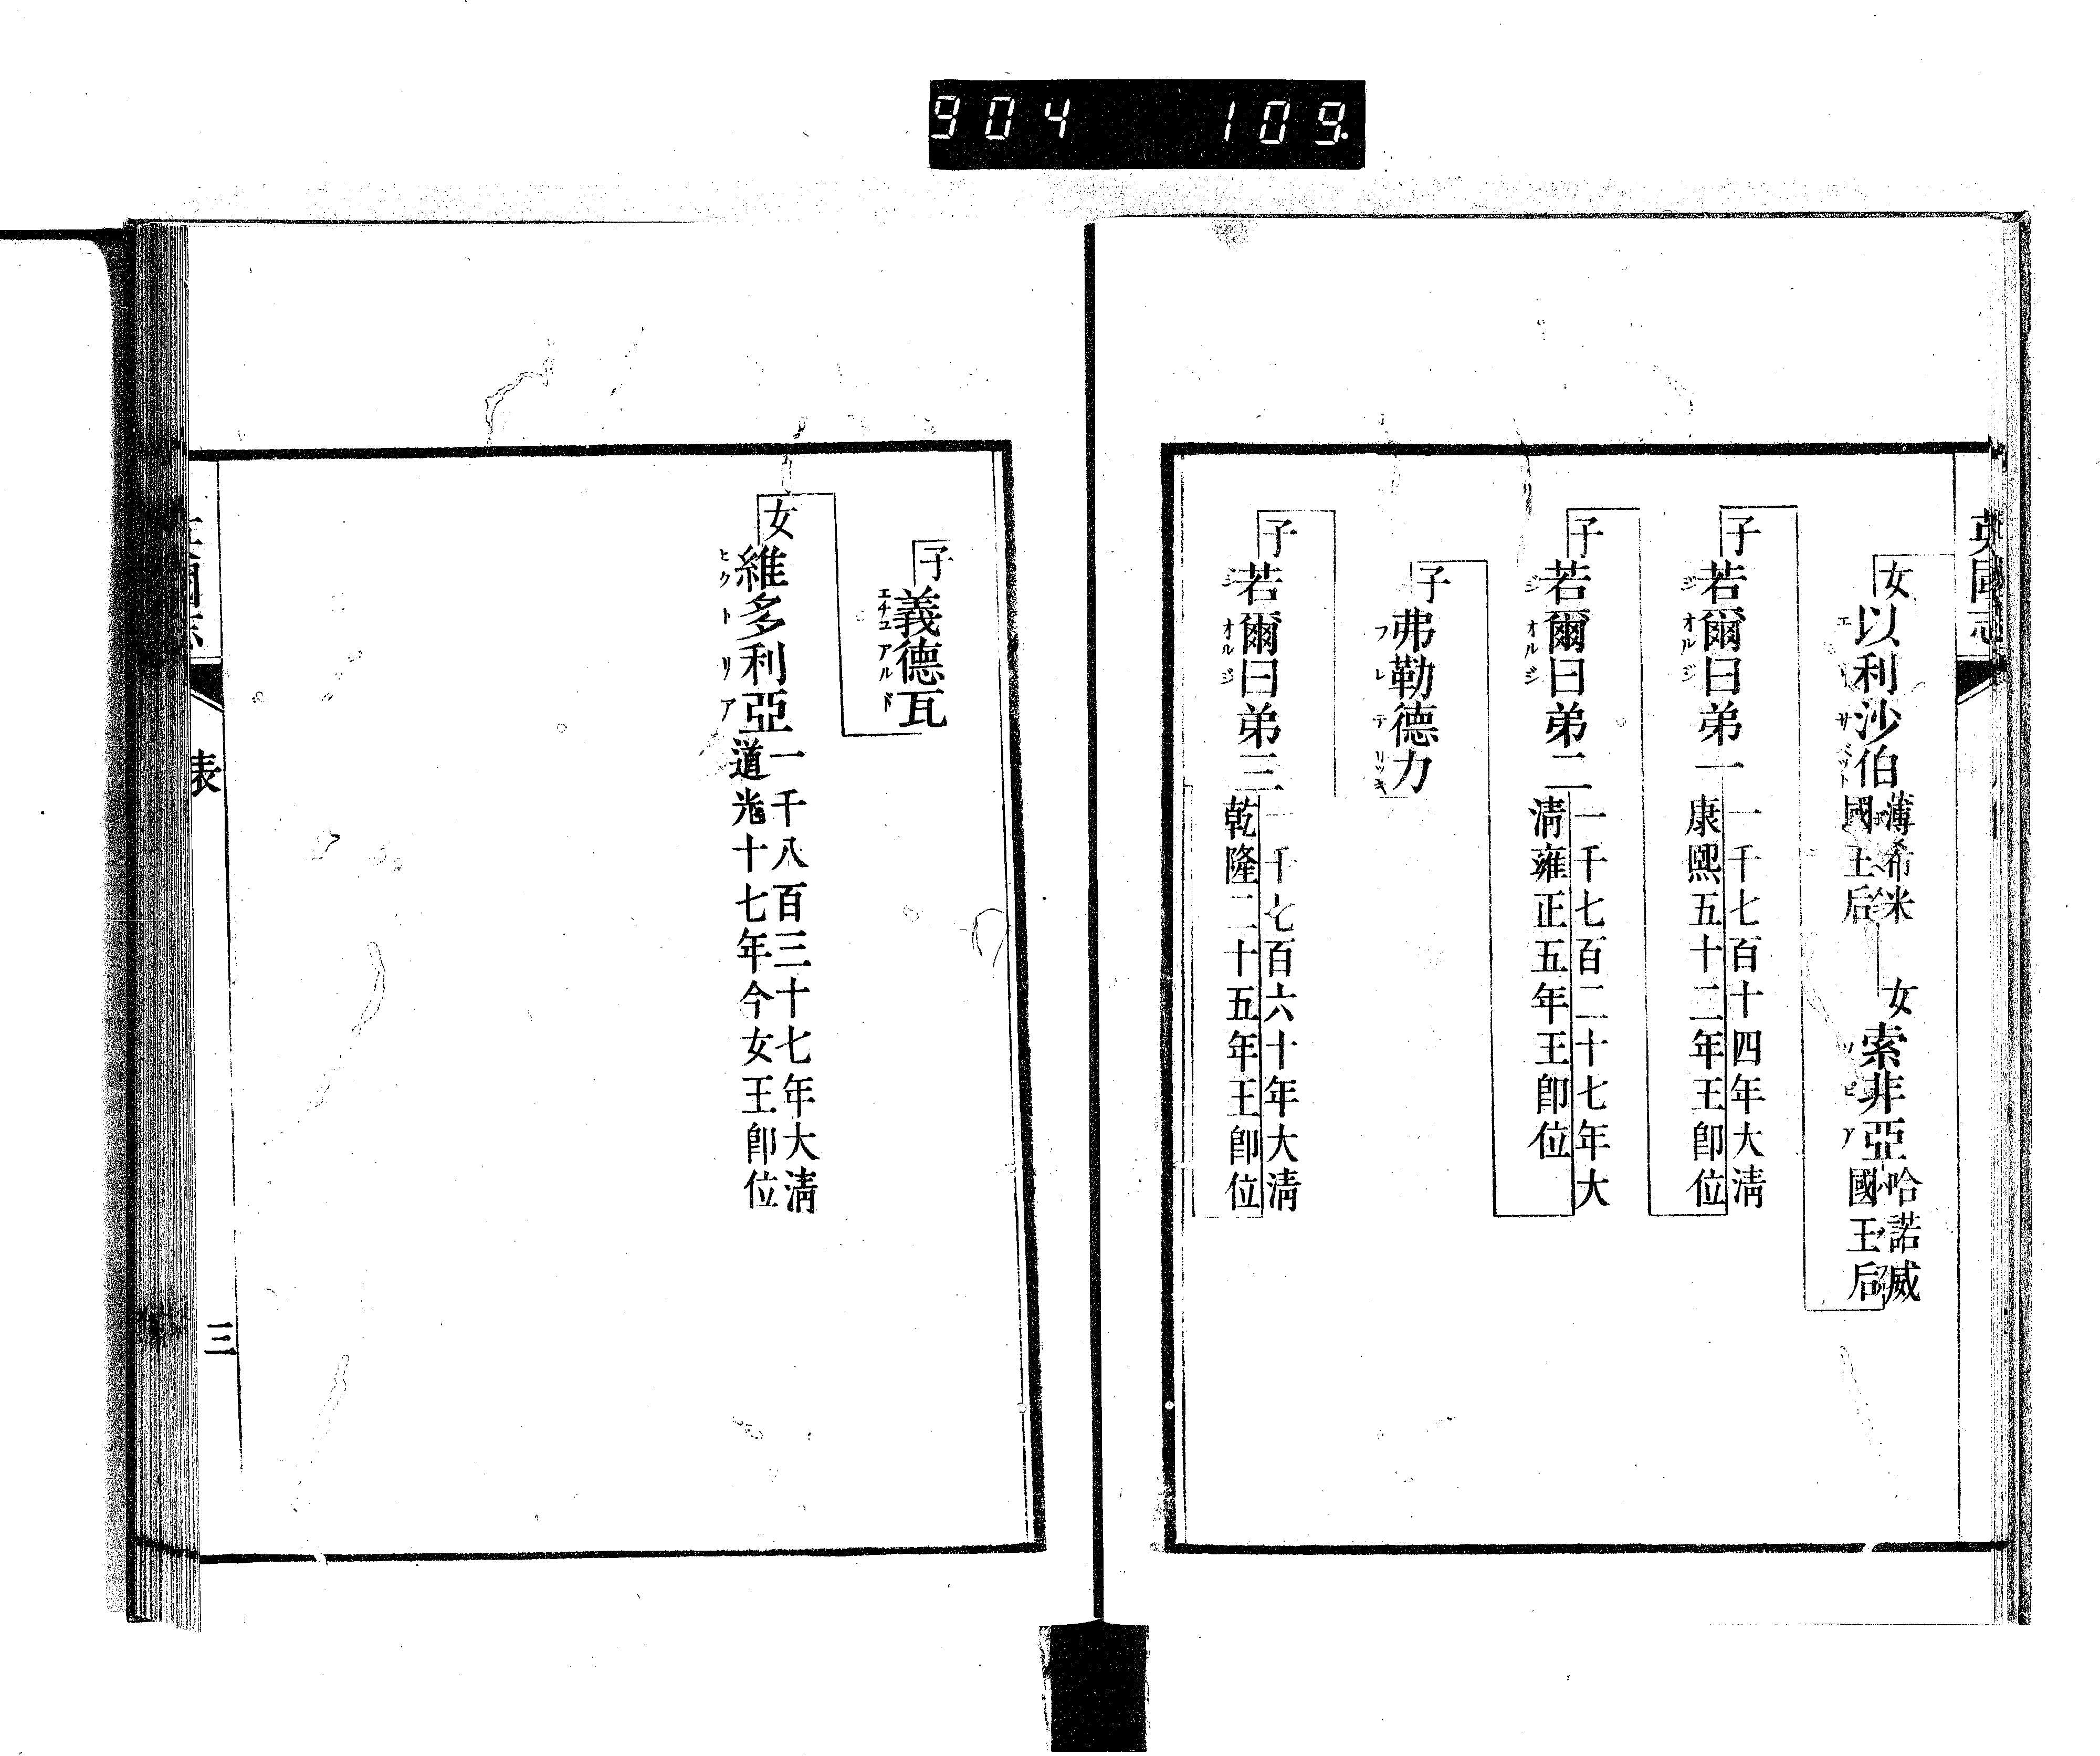 904 109.
英國志
女以利沙伯薄希米國王后
女索非亞哈諾威國王后
ソヒア
子若爾曰弟一一千七百十四年大淸康熙五十二年王卽位
ジオルジ
子若爾曰弟二一千七百二十七年大淸雍正五年王卽位
ジオルジ
子弗勒德力
フレテリッキ
子若爾曰弟三一千七百六十年大淸乾隆二十五年王卽位
ジオルジ
子義德瓦
エチユアルド
女維多利亞一千八百三十七年大淸道光十七年今女王卽位
ヒクトリア
表
三